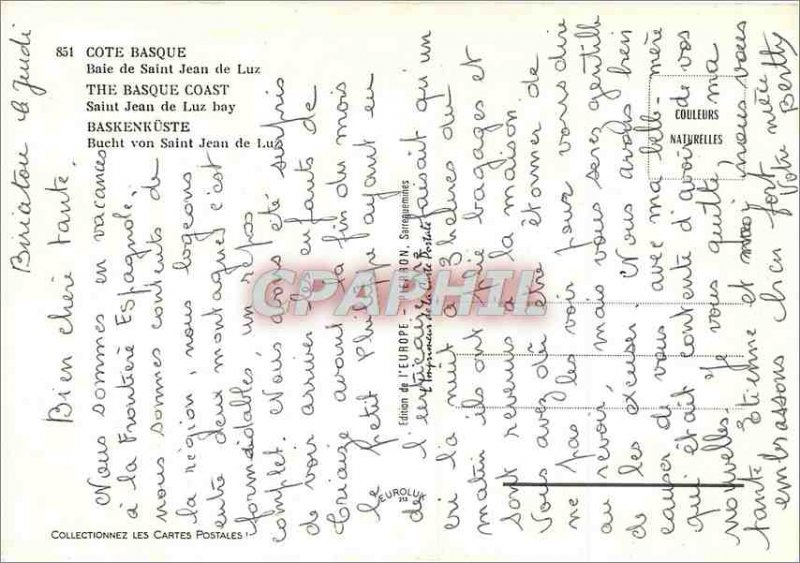 851 COTE BASQUE
Baie de Saint Jean de Luz
THE BASQUE COAST
Saint Jean de Luz bay
BASKENKÜSTE
Bucht von Saint Jean de Luz
COULEURS
NATURELLES
Edition de l'EUROPE - PIERRON, Sarreguemines
L'Imprimeur de la Carte Postale
EUROLUX
213
COLLECTIONNEZ LES CARTES POSTALES !
CPAPHIL
Biriatou le Jeudi
Bien chère tante.
Nous sommes en vacances
à la Frontière Espagnole,
nous sommes contents de
la région, nous logeons
entre deux montagnes c'est
formidables, un repos
complet. Nous avons été surpris
de voir arriver les enfants de
avant la fin du mois
le petit Philippe ayant eu
de faisait qu'un
cri la nuit à 3 heures du
matin ils ont plié bagages et
sont revenus à la maison.
Vous avez dû être étonner de
ne pas les voir pour vous dire
au revoir, mais vous serez gentille
de les excuser. Nous avons bien
causer de vous avec ma belle-mère
qui était contente d'avoir de vos
nouvelles. Je vous quitte, ma
tante Etienne et moi, nous vous
embrassons bien fort
Votre nièce
Berthy